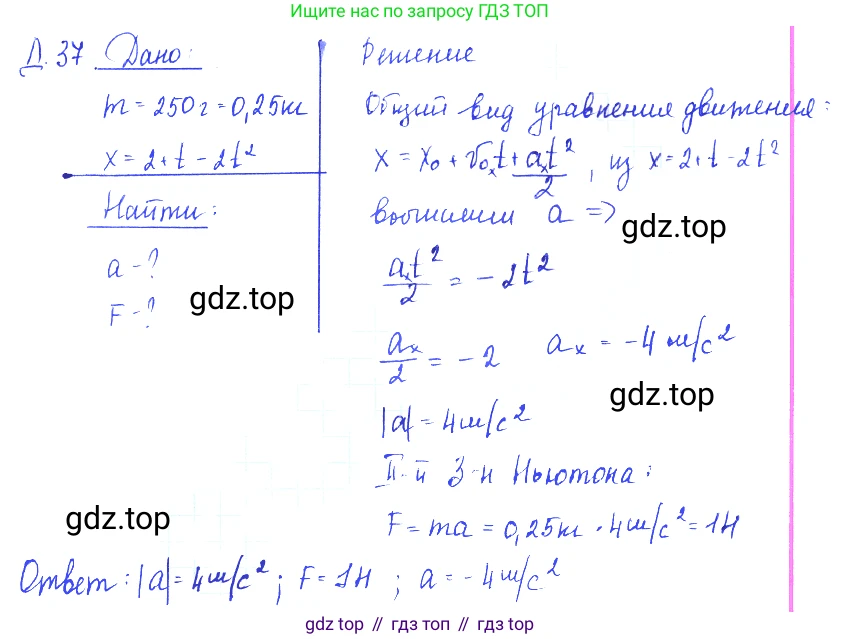 Ищите нас по запросу ГДЗ ТОП
Д. 37 Дано:
m = 250г = 0,25кг
x = 2 + t - 2t²
Найти:
a - ?
F - ?
gdz.top
Решение
Общий вид уравнения движения:
x = x₀ + v₀ₓt + aₓt²/2, из x = 2 + t - 2t²
a =>
gdz.top
aₓt²/2 = - 2t²
aₓ/2 = - 2 aₓ = - 4 м/с²
gdz.top
|a| = 4 м/с²
II-й З-н Ньютона:
F = ma = 0,25кг · 4 м/с² = 1Н
gdz.top
Ответ: |a| = 4 м/с²; F = 1Н; a = - 4 м/с²
gdz топ // гдз топ // gdz top